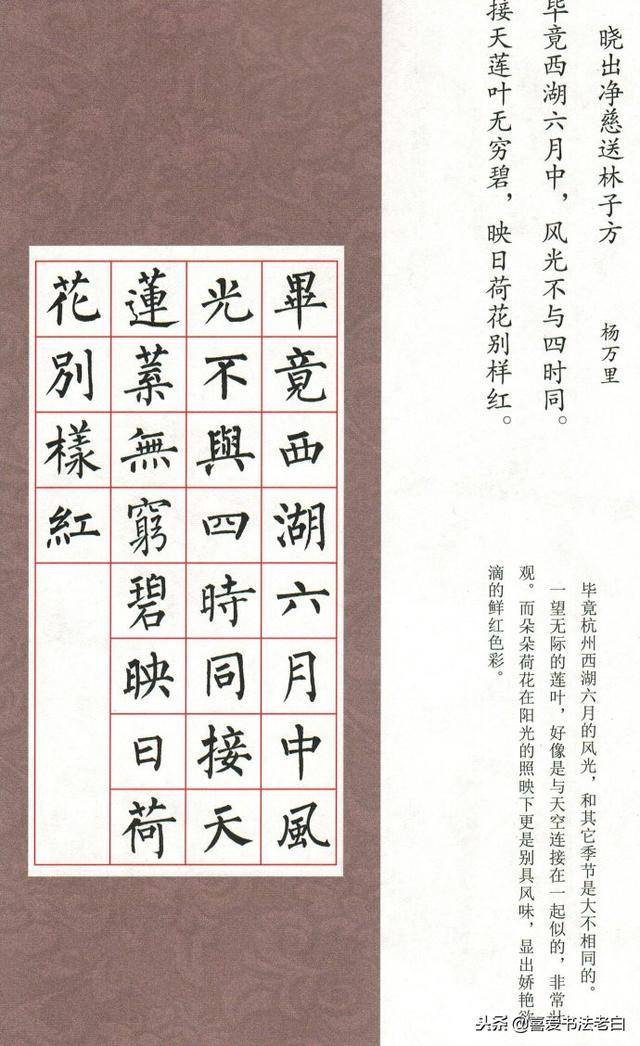 晓出净慈送林子方
杨万里
毕竟西湖六月中，风光不与四时同。
接天莲叶无穷碧，映日荷花别样红。
毕竟杭州西湖六月的风光，和其它季节是大不相同的。
一望无际的莲叶，好像是与天空连接在一起似的，非常壮
观。而朵朵荷花在阳光的照映下更是别具风味，显出娇艳欲
滴的鲜红色彩。
畢竟西湖六月中風
光不與四時同接天
蓮葉無窮碧映日荷
花別樣紅
头条 @喜爱书法老白